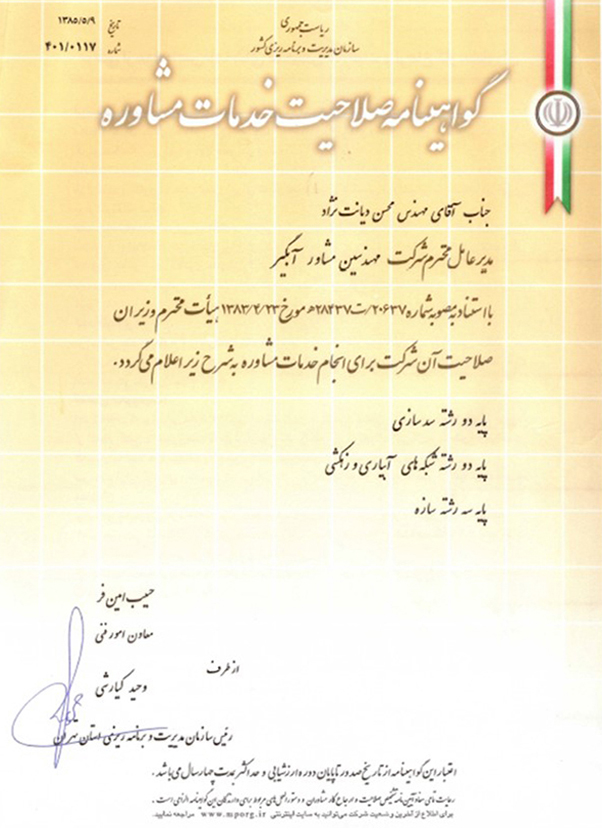 ریاست جمهوری
سازمان مدیریت و برنامه ریزی کشور
تاریخ ۱۳۸۵/۵/۹
شماره ۴۰۱/۰۱۱۷
گواهینامه صلاحیت خدمات مشاوره
جناب آقای مهندس محسن دیانت نژاد
مدیر عامل محترم شرکت مهندسین مشاور آبگیر
با استناد به مصوبه شماره ۲۰۶۳۷/ت۲۸۴۳۷ه مورخ ۱۳۸۳/۴/۲۳ هیأت محترم وزیران
صلاحیت آن شرکت برای انجام خدمات مشاوره به شرح زیر اعلام می گردد.
پایه دو رشته سد سازی
پایه دو رشته شبکه های آبیاری و زهکشی
پایه سه رشته سازه
حبیب امین فر
معاون امور فنی
از طرف
وحید کیارشی
رئیس سازمان مدیریت و برنامه ریزی استان تهران
اعتبار این گواهینامه از تاریخ صدور تا پایان دوره ارزشیابی و حداکثر بمدت چهار سال می باشد.
رعایت تمامی مفاد آیین نامه تشخیص صلاحیت و ارجاع کار مشاوران و دستورالعمل های مربوط برای دارندگان این گواهینامه الزامی است.
برای اطلاع از آخرین وضعیت شرکت می‌توانید به سایت اینترنتی www.mporg.ir مراجعه نمایید.